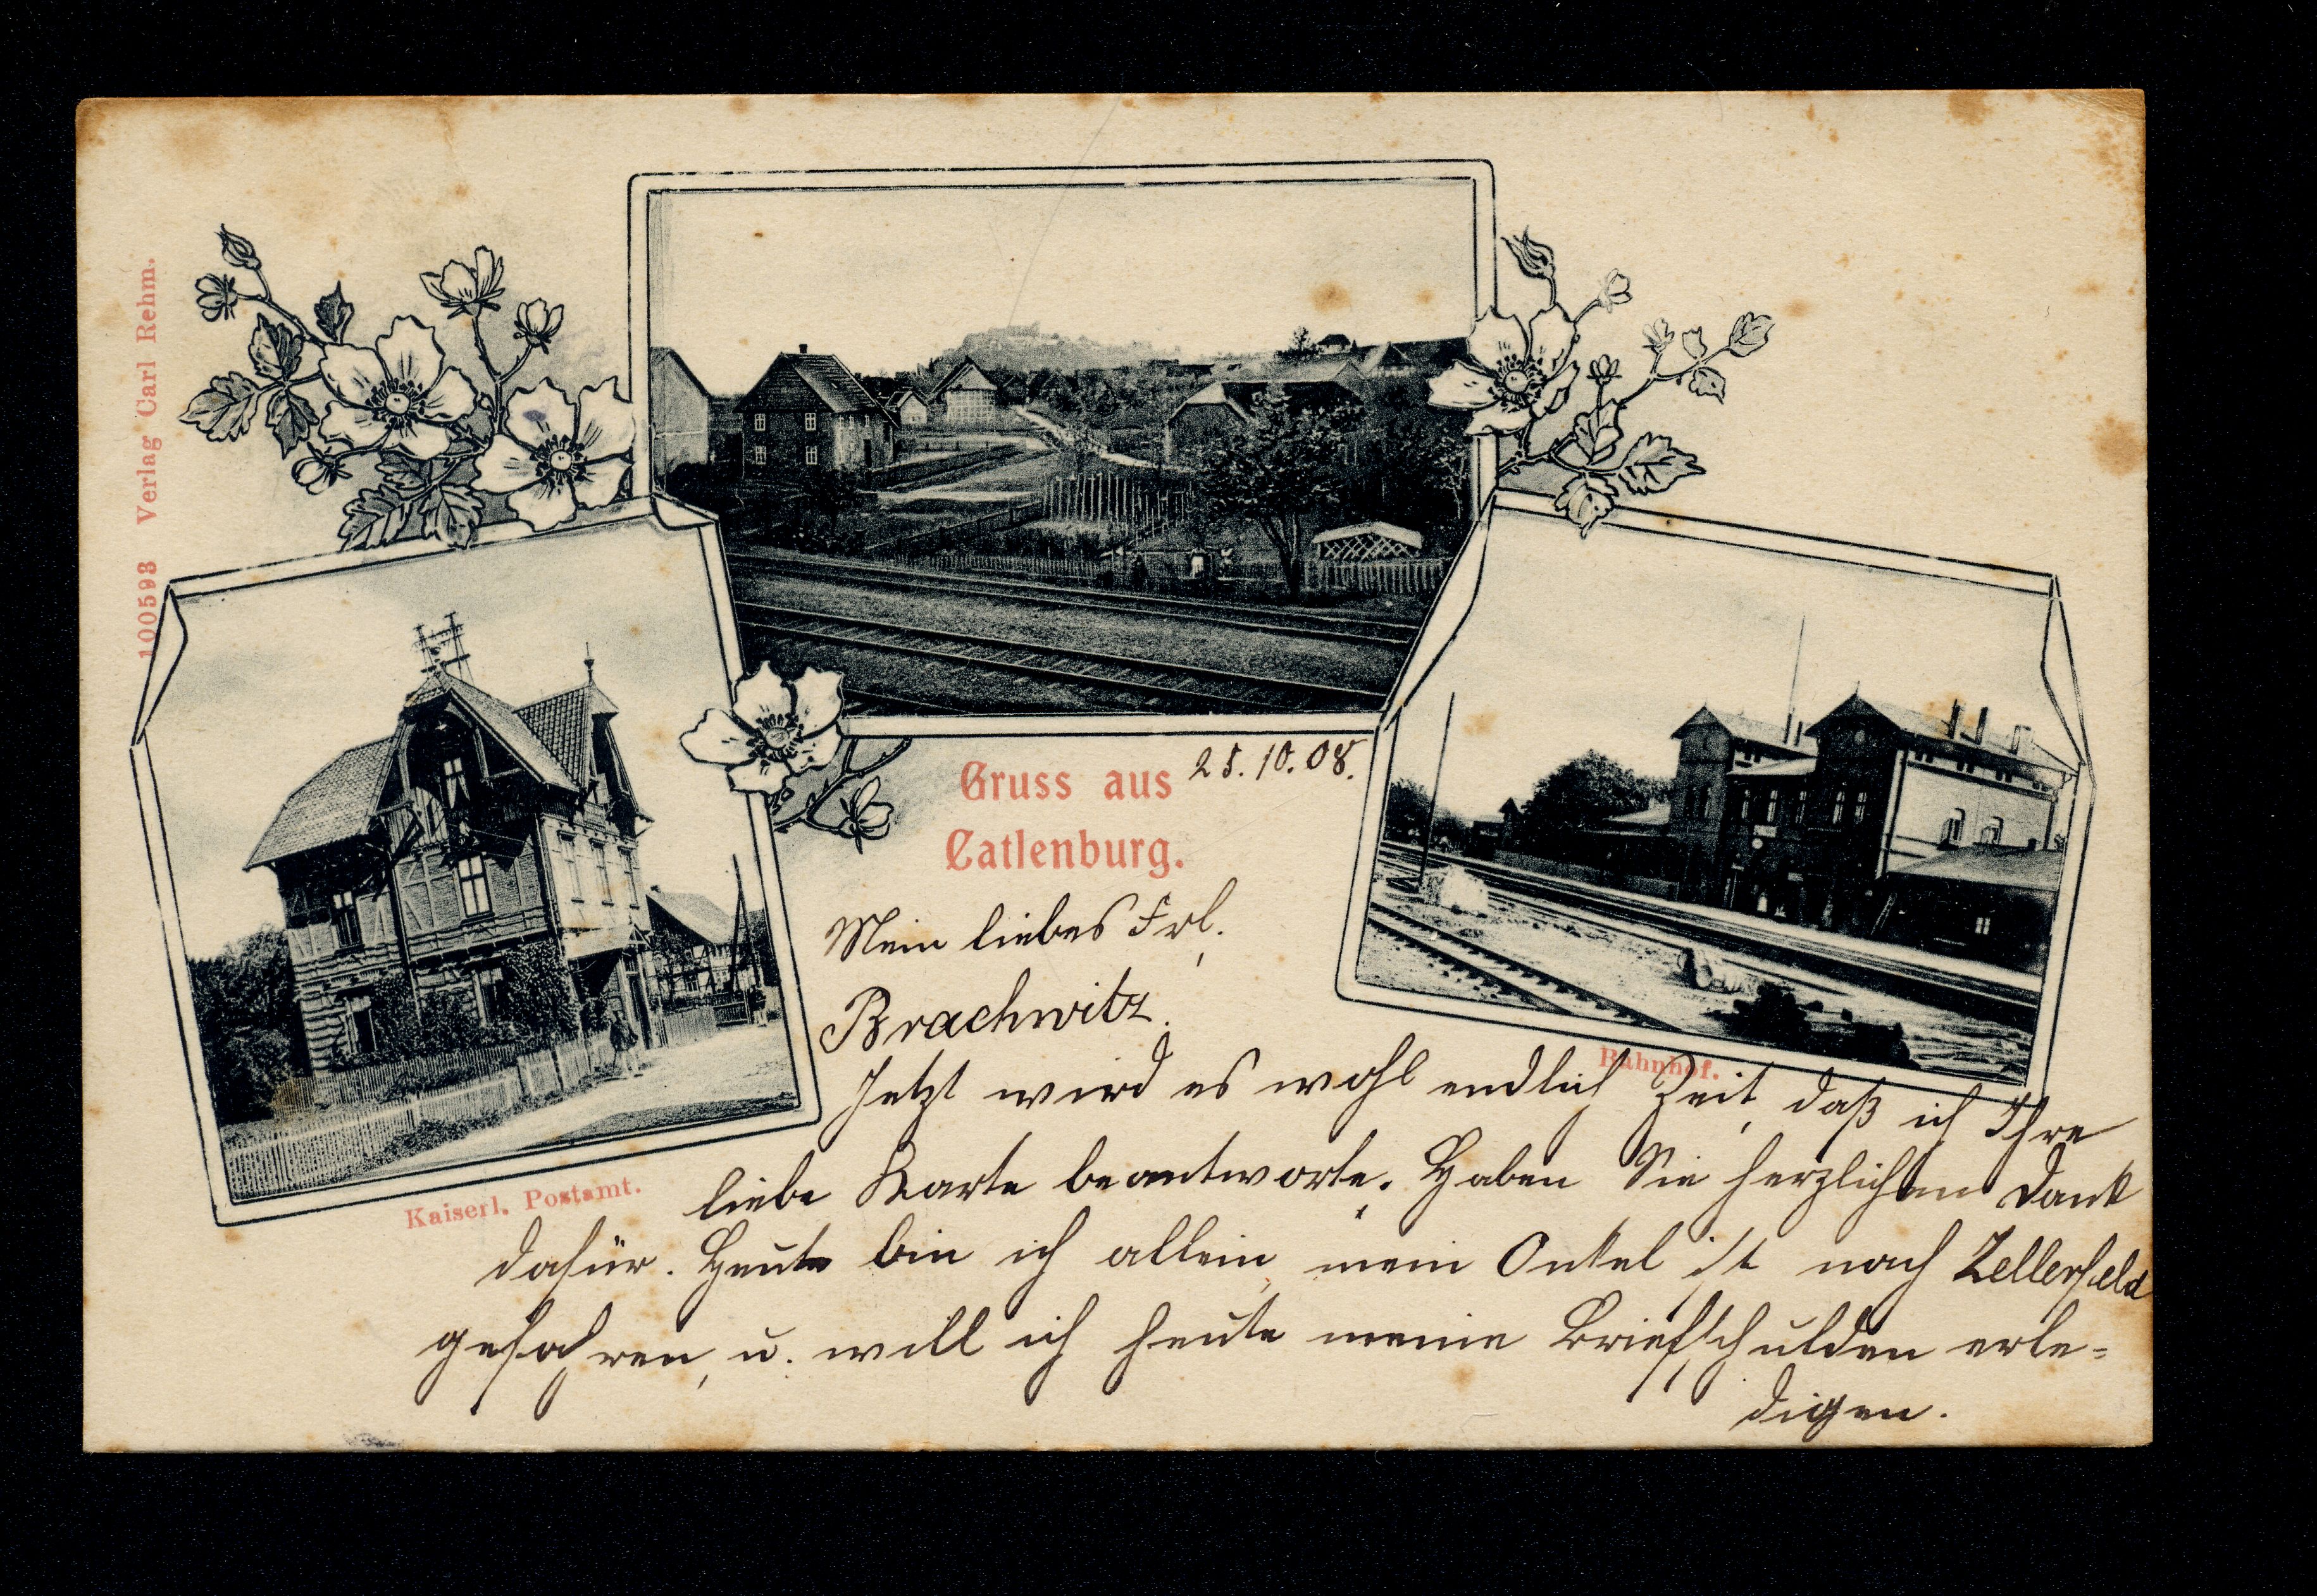 100593 Verlag Carl Rehm.
Gruss aus
Catlenburg.
25.10.08.
Kaiserl. Postamt.
Bahnhof.
Mein liebes Frl.
Brachwitz.
Jetzt wird es wohl endlich Zeit, daß ich Ihre
liebe Karte beantworte. Haben Sie herzlichen Dank
dafür. Heute bin ich allein, mein Onkel ist nach Zellerfeld
gefahren, u. will ich heute meine Briefschulden erle=
digen.